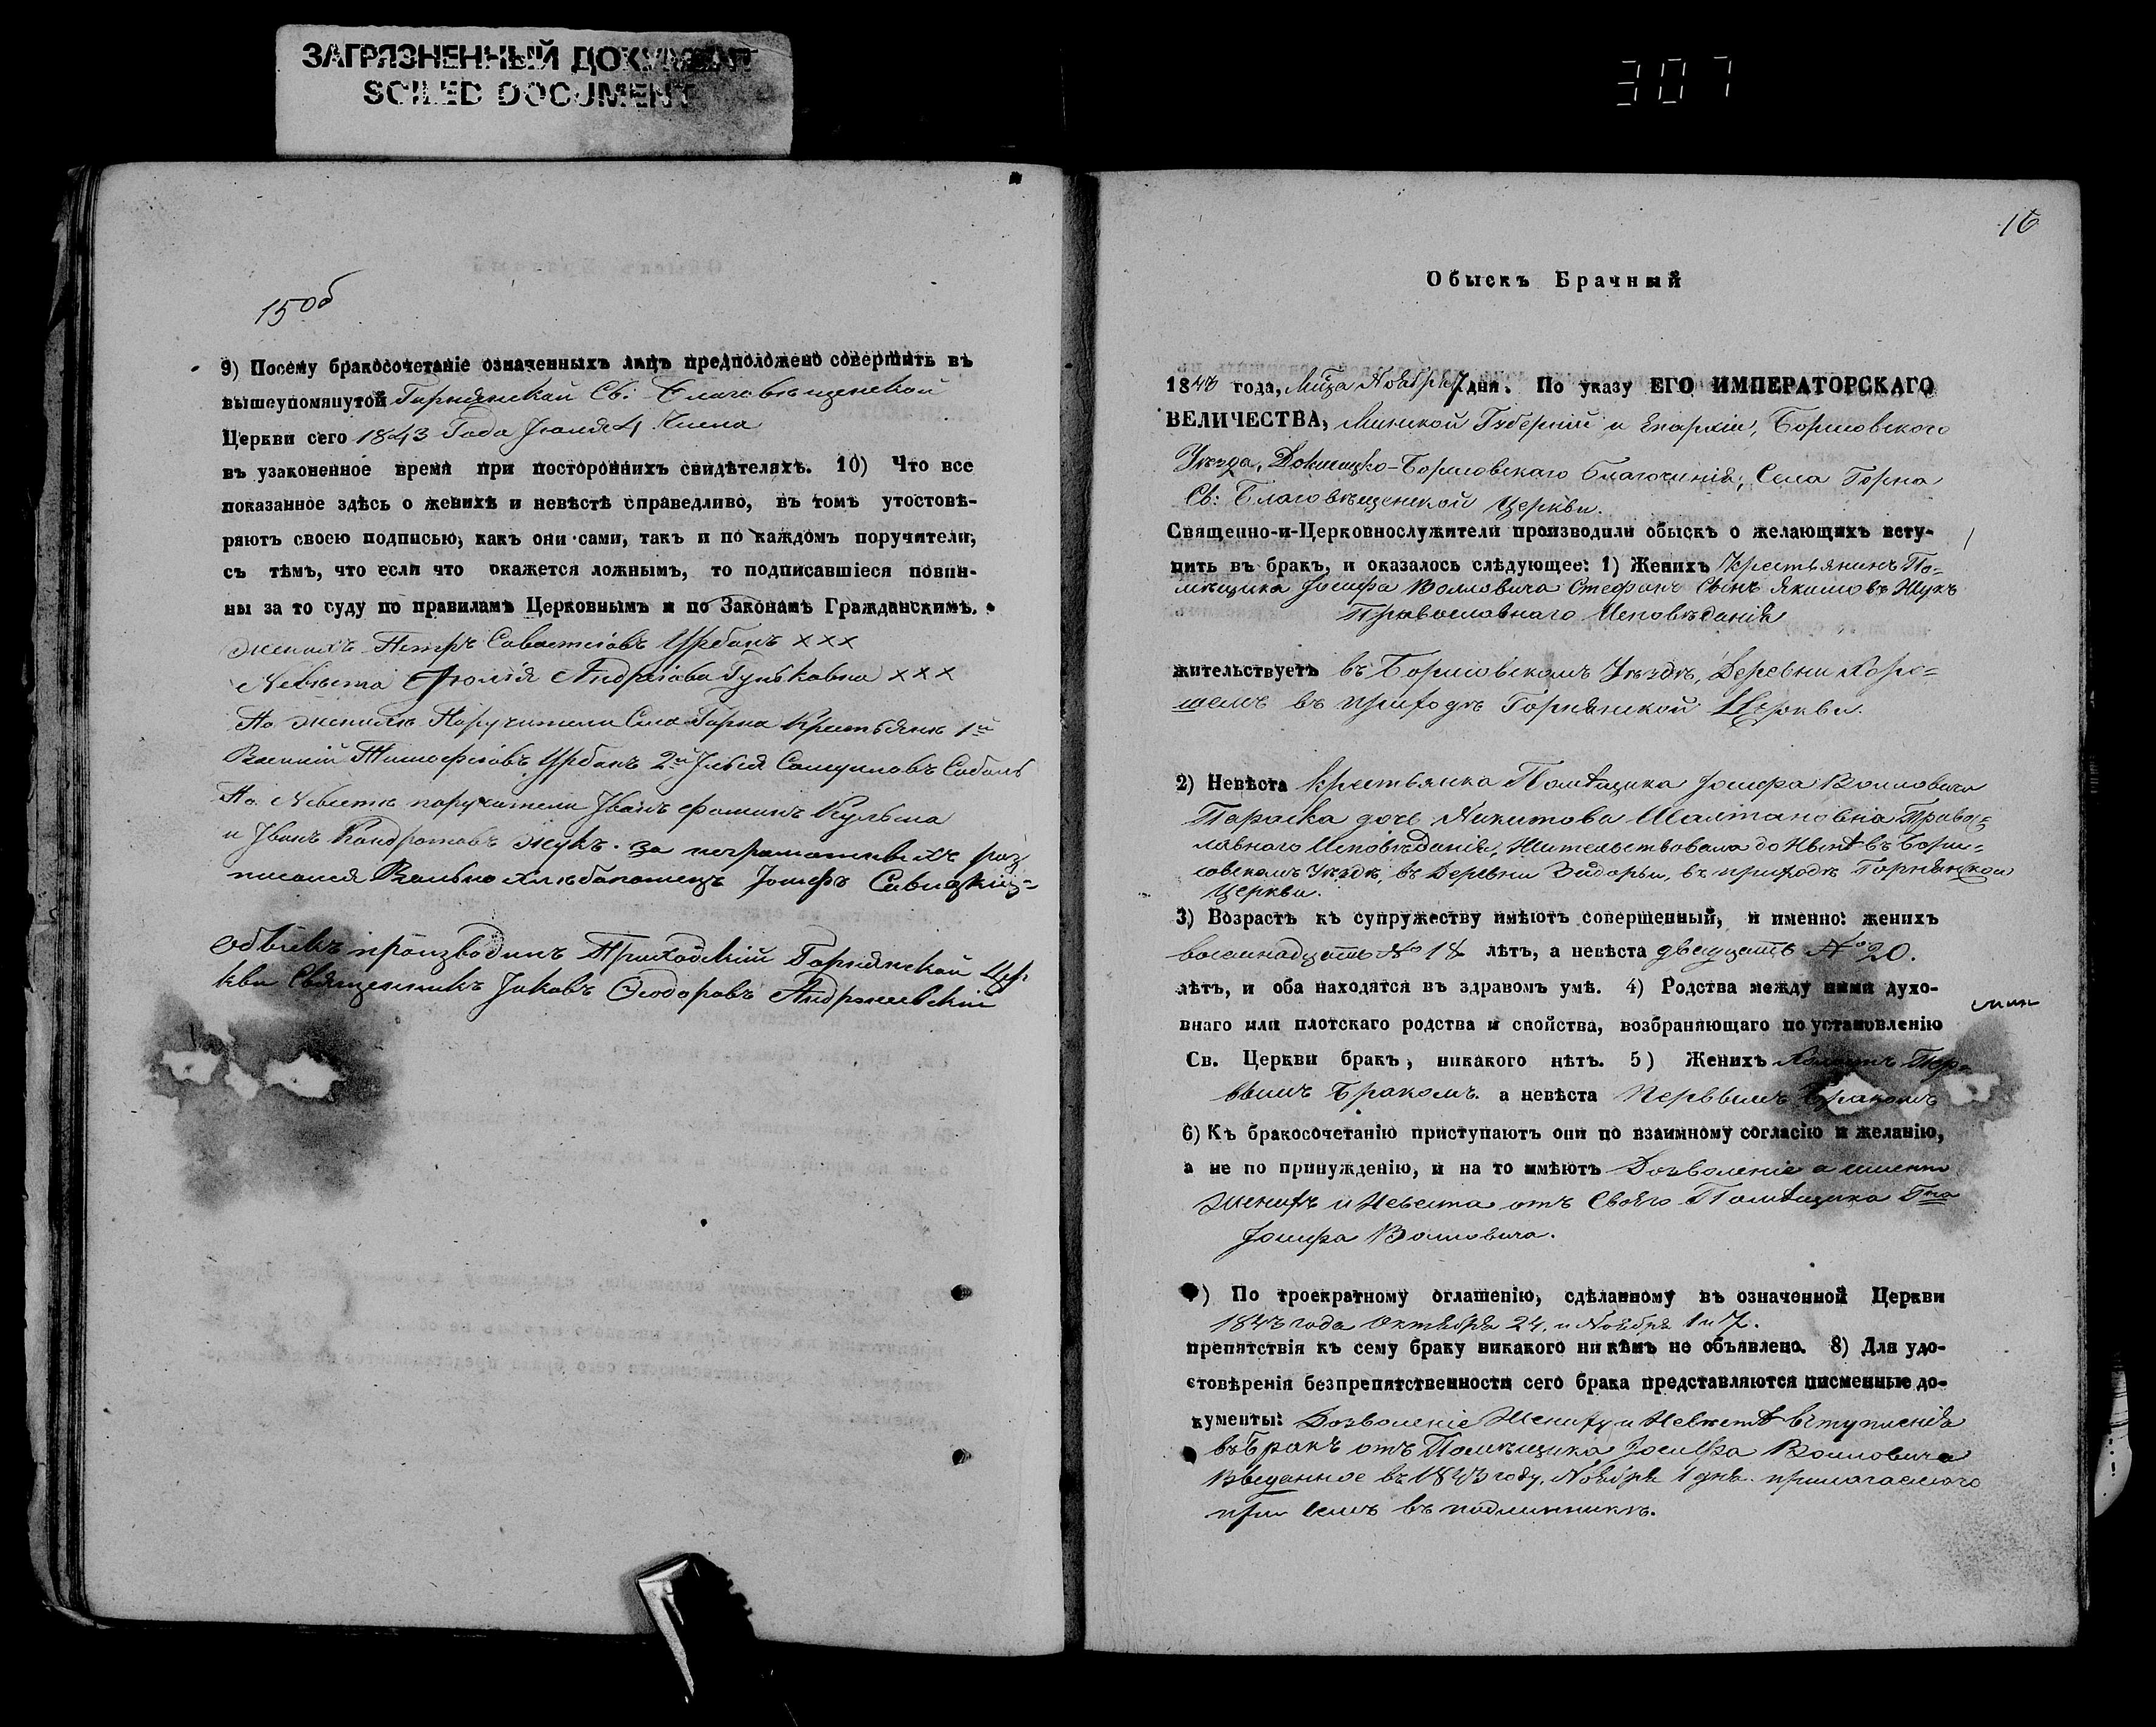 ЗАГРЯЗНЕННЫЙ ДОКУМЕНТ
SOILED DOCUMENT
307
15 об
9) Посему бракосочетаніе означенныхъ лицъ предположено совершить въ
вышеупомянутой Горнянской Св: Благовѣщенской
Церкви сего 1843 Года Іюля 4 Числа
въ узаконенное время при постороннихъ свидѣтеляхъ. 10) Что все
показанное здѣсь о женихѣ и невѣстѣ справедливо, въ томъ утостовѣ-
ряютъ своею подписью, какъ они сами, такъ и по каждомъ поручители,
съ тѣмъ, что если что окажется ложнымъ, то подписавшіеся повин-
ны за то суду по правиламъ Церковнымъ и по Законамъ Гражданскимъ.
женихъ Петръ Савастіовъ Урбанъ ххх
Невѣста Андреіова Гуньковна ххх
По женихѣ Поручители Села Горна Крестьяне 1й
Василій Тимофеіовъ Урбанъ 2й Илья Самуиловъ Соболь
По Невѣстѣ поручители Иванъ Фоминъ Кульма
и Иванъ Кондратовъ Жукъ. за неграмотныхъ роз
писался Вольно хлѣбопашецъ Іосифъ Савицкій
Обыскъ производилъ Приходскій Горнянской Цер
кви Священникъ Іаковъ Ѳеодоровъ Андрошевскій
16
Обыскъ Брачный
1843 года, Мца Ноября 7 дня. По указу ЕГО ИМПЕРАТОРСКАГО
ВЕЛИЧЕСТВА, Минской Губерніи и Епархіи, Борисовского
Уѣзда, Докшицко-Борисовскаго Благочинія, Села Горна
Св: Благовѣщенской Церкви.
Священно-и-Церковнослужители производили обыскъ о желающихъ всту-
пить въ бракъ, и оказалось слѣдующее: 1) Женихъ Крестьянинъ По-
мѣщика Іосифа Воловича Стефанъ Сынъ Якимовъ Жукъ
Православнаго Исповѣданія
жительствуетъ въ Борисовскомъ Уѣздѣ, Деревни Хоре-
шемъ въ приходѣ Горнянской Церкви.
2) Невѣста Крестьянка Помѣщика Іосифа Воловича
Параска дочь Никитова Шалтановна Право-
славнаго Исповѣданія, Жительствовала до Нынѣ въ Бори-
совскомъ Уѣздѣ, въ Деревни въ приходѣ Горнянской
Церкви.
3) Возрастъ къ супружеству имѣютъ совершенный, и именно: женихъ
восемнадцать № 18 лѣтъ, а невѣста двадцать № 20.
лѣтъ, и оба находятся въ здравомъ умѣ. 4) Родства между ними духо-
внаго или плотскаго родства и свойства, возбраняющаго по установленію
Св. Церкви бракъ, никакого нѣтъ. 5) Женихъ Холостъ Пер-
вымъ Бракомъ. а невѣста Первымъ Бракомъ
6) Къ бракосочетанію приступаютъ они по взаимному согласію и желанію,
а не по принужденію, и на то имѣютъ Дозволеніе а именно
женихъ и Невѣста отъ Своего Помѣщика Гна
Іосифа Воловича.
7) По троекратному оглашенію, сдѣланному въ означенной Церкви
1843 года Октября 24, и Ноября 1 и 7.
препятствія къ сему браку никакого ни кѣмъ не объявлено. 8) Для удо-
стовѣренія безпрепятственности сего брака представляются писменные до-
кументы: Дозволеніе Жениху и Невѣстѣ вступленія
въ Бракъ отъ Помѣщика Іосифа Воловича
Выданное въ 1843 году, Ноября 1 дня. прилагаемого
при семъ въ подлинникѣ.